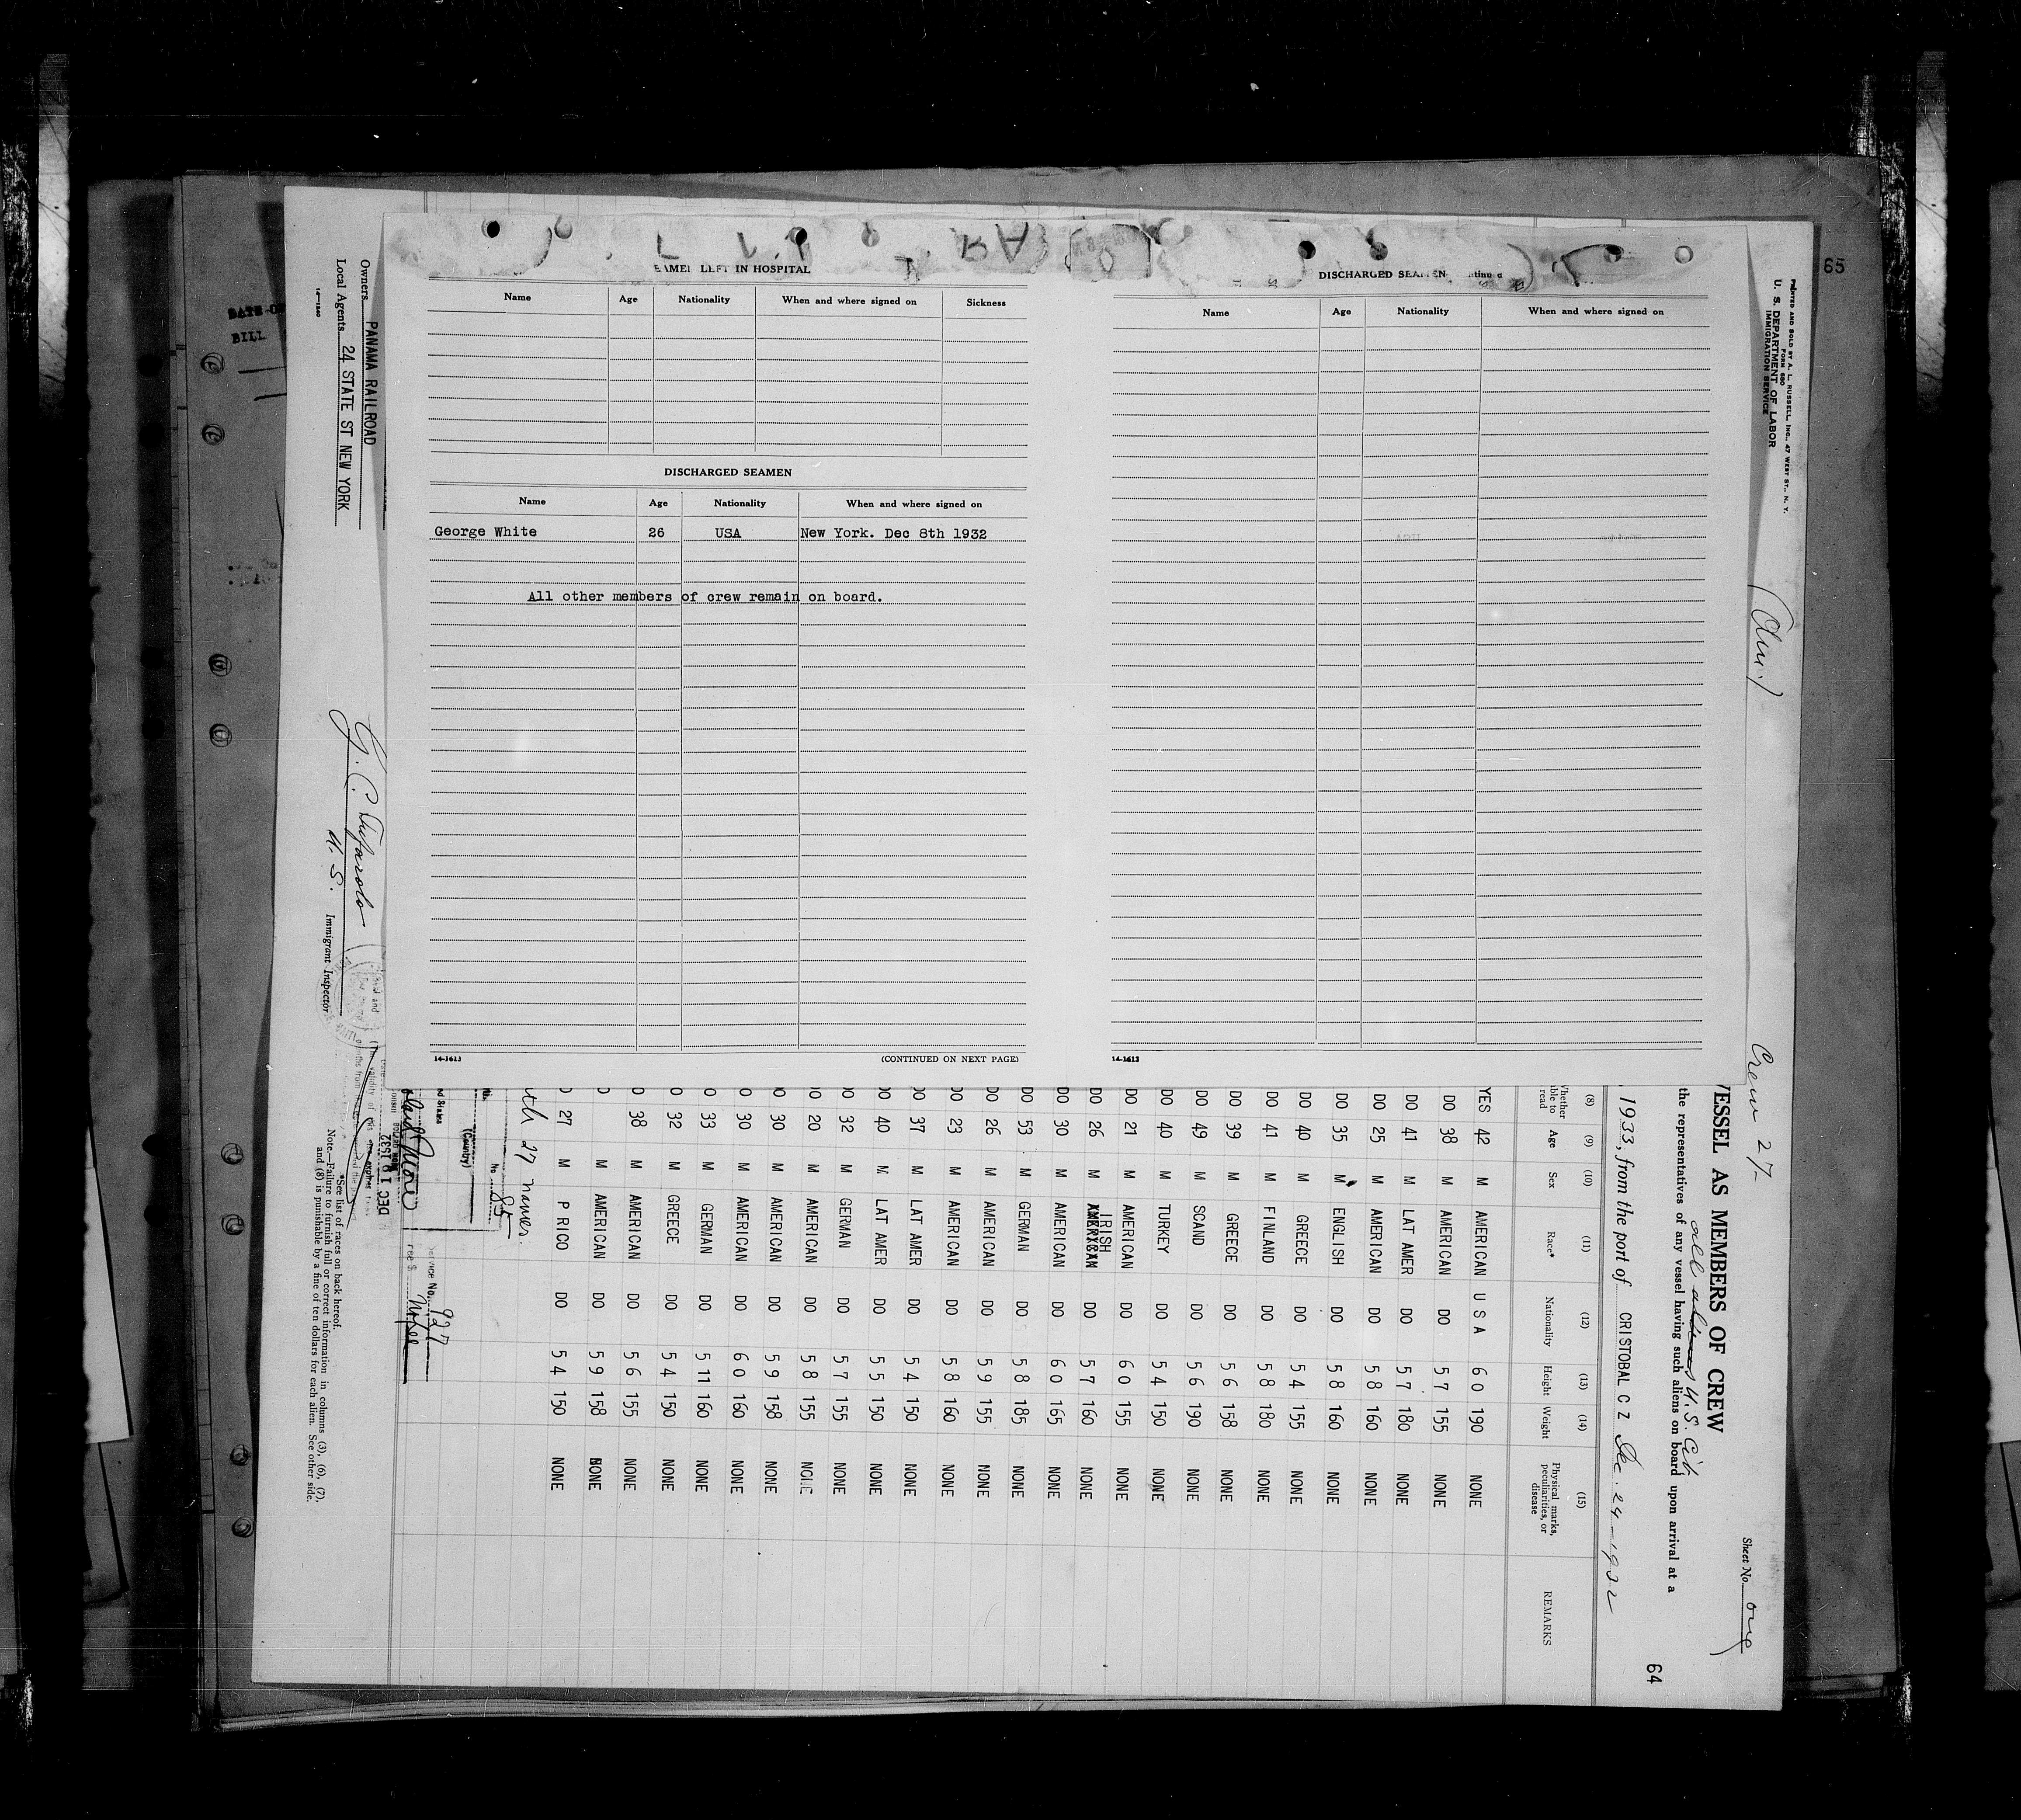 65
SEAMEN LEFT IN HOSPITAL
Name Age Nationality When and where signed on Sickness
DISCHARGED SEAMEN
Name Age Nationality When and where signed on
George White 26 USA New York. Dec 8th 1932
All other members of crew remain on board.
14-1613
(CONTINUED ON NEXT PAGE)
DISCHARGED SEAMEN
Name Age Nationality When and where signed on
14-1613
PRINTED AND SOLD BY A. L. RUSSELL, INC., 47 WEST ST., N. Y.
FORM 680
U. S. DEPARTMENT OF LABOR
IMMIGRATION SERVICE
Crew 27
Sheet No. one
64
VESSEL AS MEMBERS OF CREW
all aliens U.S. Cit
the representatives of any vessel having such aliens on board upon arrival at a
1933, from the port of CRISTOBAL C Z Dec. 24-1932
(8) (9) (10) (11) (12) (13) (14) (15)
Whether able to read Age Sex Race* Nationality Height Weight Physical marks, peculiarities, or disease REMARKS
YES 42 M AMERICAN U S A 6 0 190 NONE
DO 38 M AMERICAN DO 5 7 155 NONE
DO 41 M LAT AMER DO 5 7 180 NONE
DO 25 M AMERICAN DO 5 8 160 NONE
DO 35 M ENGLISH DO 5 8 160 NONE
DO 40 M GREECE DO 5 4 155 NONE
DO 41 M FINLAND DO 5 8 180 NONE
DO 39 M GREECE DO 5 6 158 NONE
DO 49 M SCAND DO 5 6 190 NONE
DO 40 M TURKEY DO 5 4 150 NONE
DO 21 M AMERICAN DO 6 0 155 NONE
DO 26 M IRISH AMERICAN DO 5 7 160 NONE
DO 30 M AMERICAN DO 6 0 165 NONE
DO 53 M GERMAN DO 5 8 185 NONE
DO 26 M AMERICAN DO 5 9 155 NONE
DO 23 M AMERICAN DO 5 8 160 NONE
DO 37 M LAT AMER DO 5 4 150 NONE
DO 40 M LAT AMER DO 5 5 150 NONE
DO 32 M GERMAN DO 5 7 155 NONE
DO 20 M AMERICAN DO 5 8 155 NONE
DO 30 M AMERICAN DO 5 9 158 NONE
O 30 M AMERICAN DO 6 0 160 NONE
O 33 M GERMAN DO 5 11 160 NONE
O 32 M GREECE DO 5 4 150 NONE
O 38 M AMERICAN DO 5 6 155 NONE
M AMERICAN DO 5 9 158 NONE
27 M P RICO DO 5 4 150 NONE
27 names.
No 85
(Country)
Service No. 927
Fee $ No fee
DEC 19 1932
Owners PANAMA RAILROAD
Local Agents 24 STATE ST NEW YORK
14-1240
U. S. Immigrant Inspector
*See list of races on back hereof.
Note.—Failure to furnish full or correct information in columns (3), (6), (7),
and (8) is punishable by a fine of ten dollars for each alien. See other side.
BILL